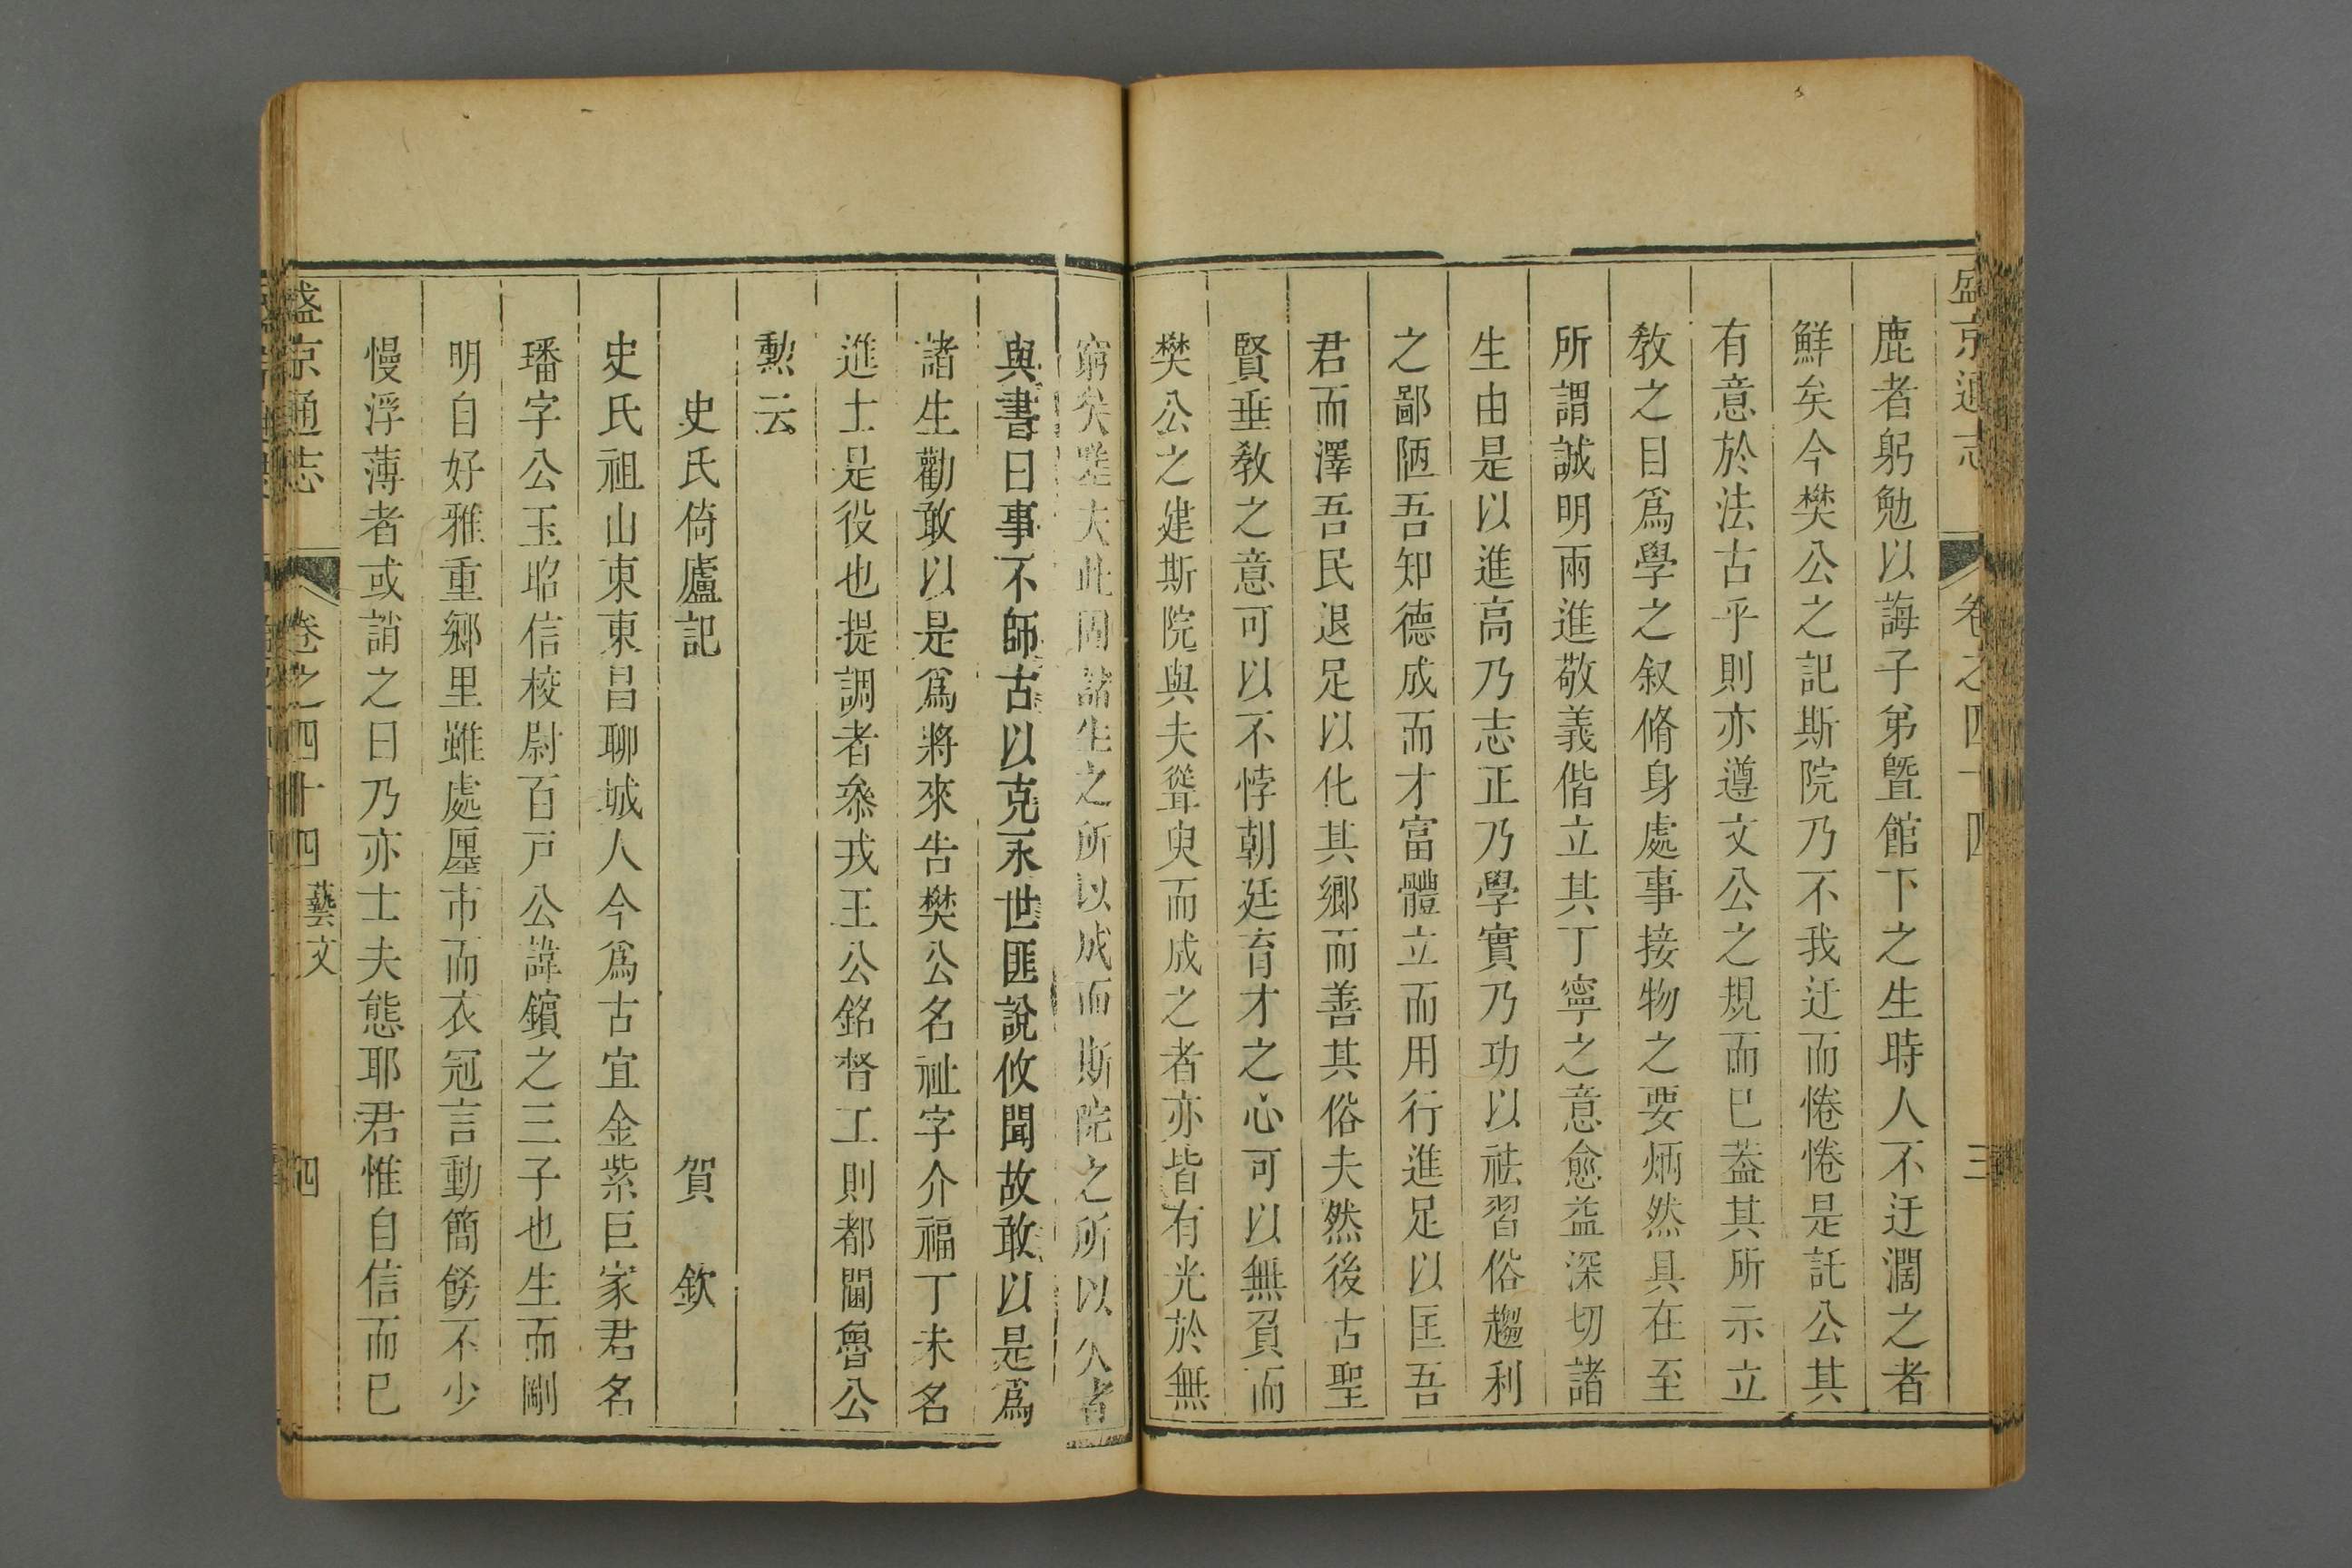 盛京通志 卷之四十四 三
鹿者躬勉以誨子弟曁館下之生時人不迂濶之者
鮮矣今樊公之記斯院乃不我迂而惓惓是託公其
有意於法古乎則亦遵文公之規而已葢其所示立
敎之目爲學之叙脩身處事接物之要炳然具在至
所謂誠明兩進敬義偕立其丁寧之意愈益深切諸
生由是以進高乃志正乃學實乃功以祛習俗趨利
之鄙陋吾知德成而才富體立而用行進足以匡吾
君而澤吾民退足以化其鄉而善其俗夫然後古聖
賢垂敎之意可以不悖朝廷育才之心可以無負而
樊公之建斯院與夫聳臾而成之者亦皆有光於無
窮矣 夫此固諸生之所以成而斯院之所以久者
與書曰事不師古以克永世匪說攸聞故敢以是爲
諸生勸敢以是爲將來告樊公名祉字介福丁未名
進士是役也提調者叅戎王公銘督工則都閫魯公
勲云
史氏倚廬記 賀欽
史氏祖山東東昌聊城人今爲古宜金紫巨家君名
璠字公玉昭信校尉百戸公諱鑌之三子也生而剛
明自好雅重鄉里雖處廛市而衣冠言動簡餙不少
慢浮薄者或誚之曰乃亦士夫態耶君惟自信而已
盛京通志 卷之四十四 藝文 四